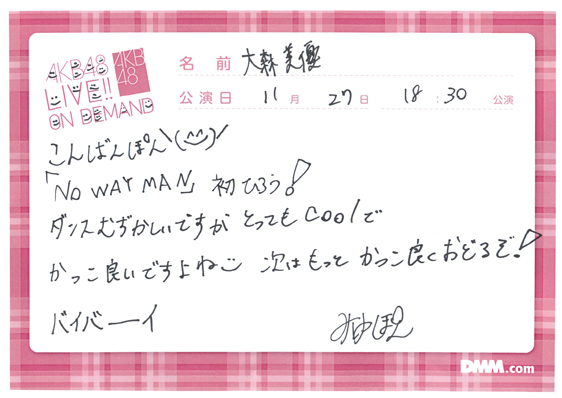 AKB48 LIVE!! ON DEMAND
AKB48
名前 大森美優
公演日 11月 27日 18:30 公演
こんばんぽん\(^^)/
「NO WAY MAN」初ひろう!
ダンスむずかしいですが とってもcoolで
かっこ良いですよね 次はもっと かっこ良くおどるぞ!
バイバーイ
みゆぽん
DMM.com